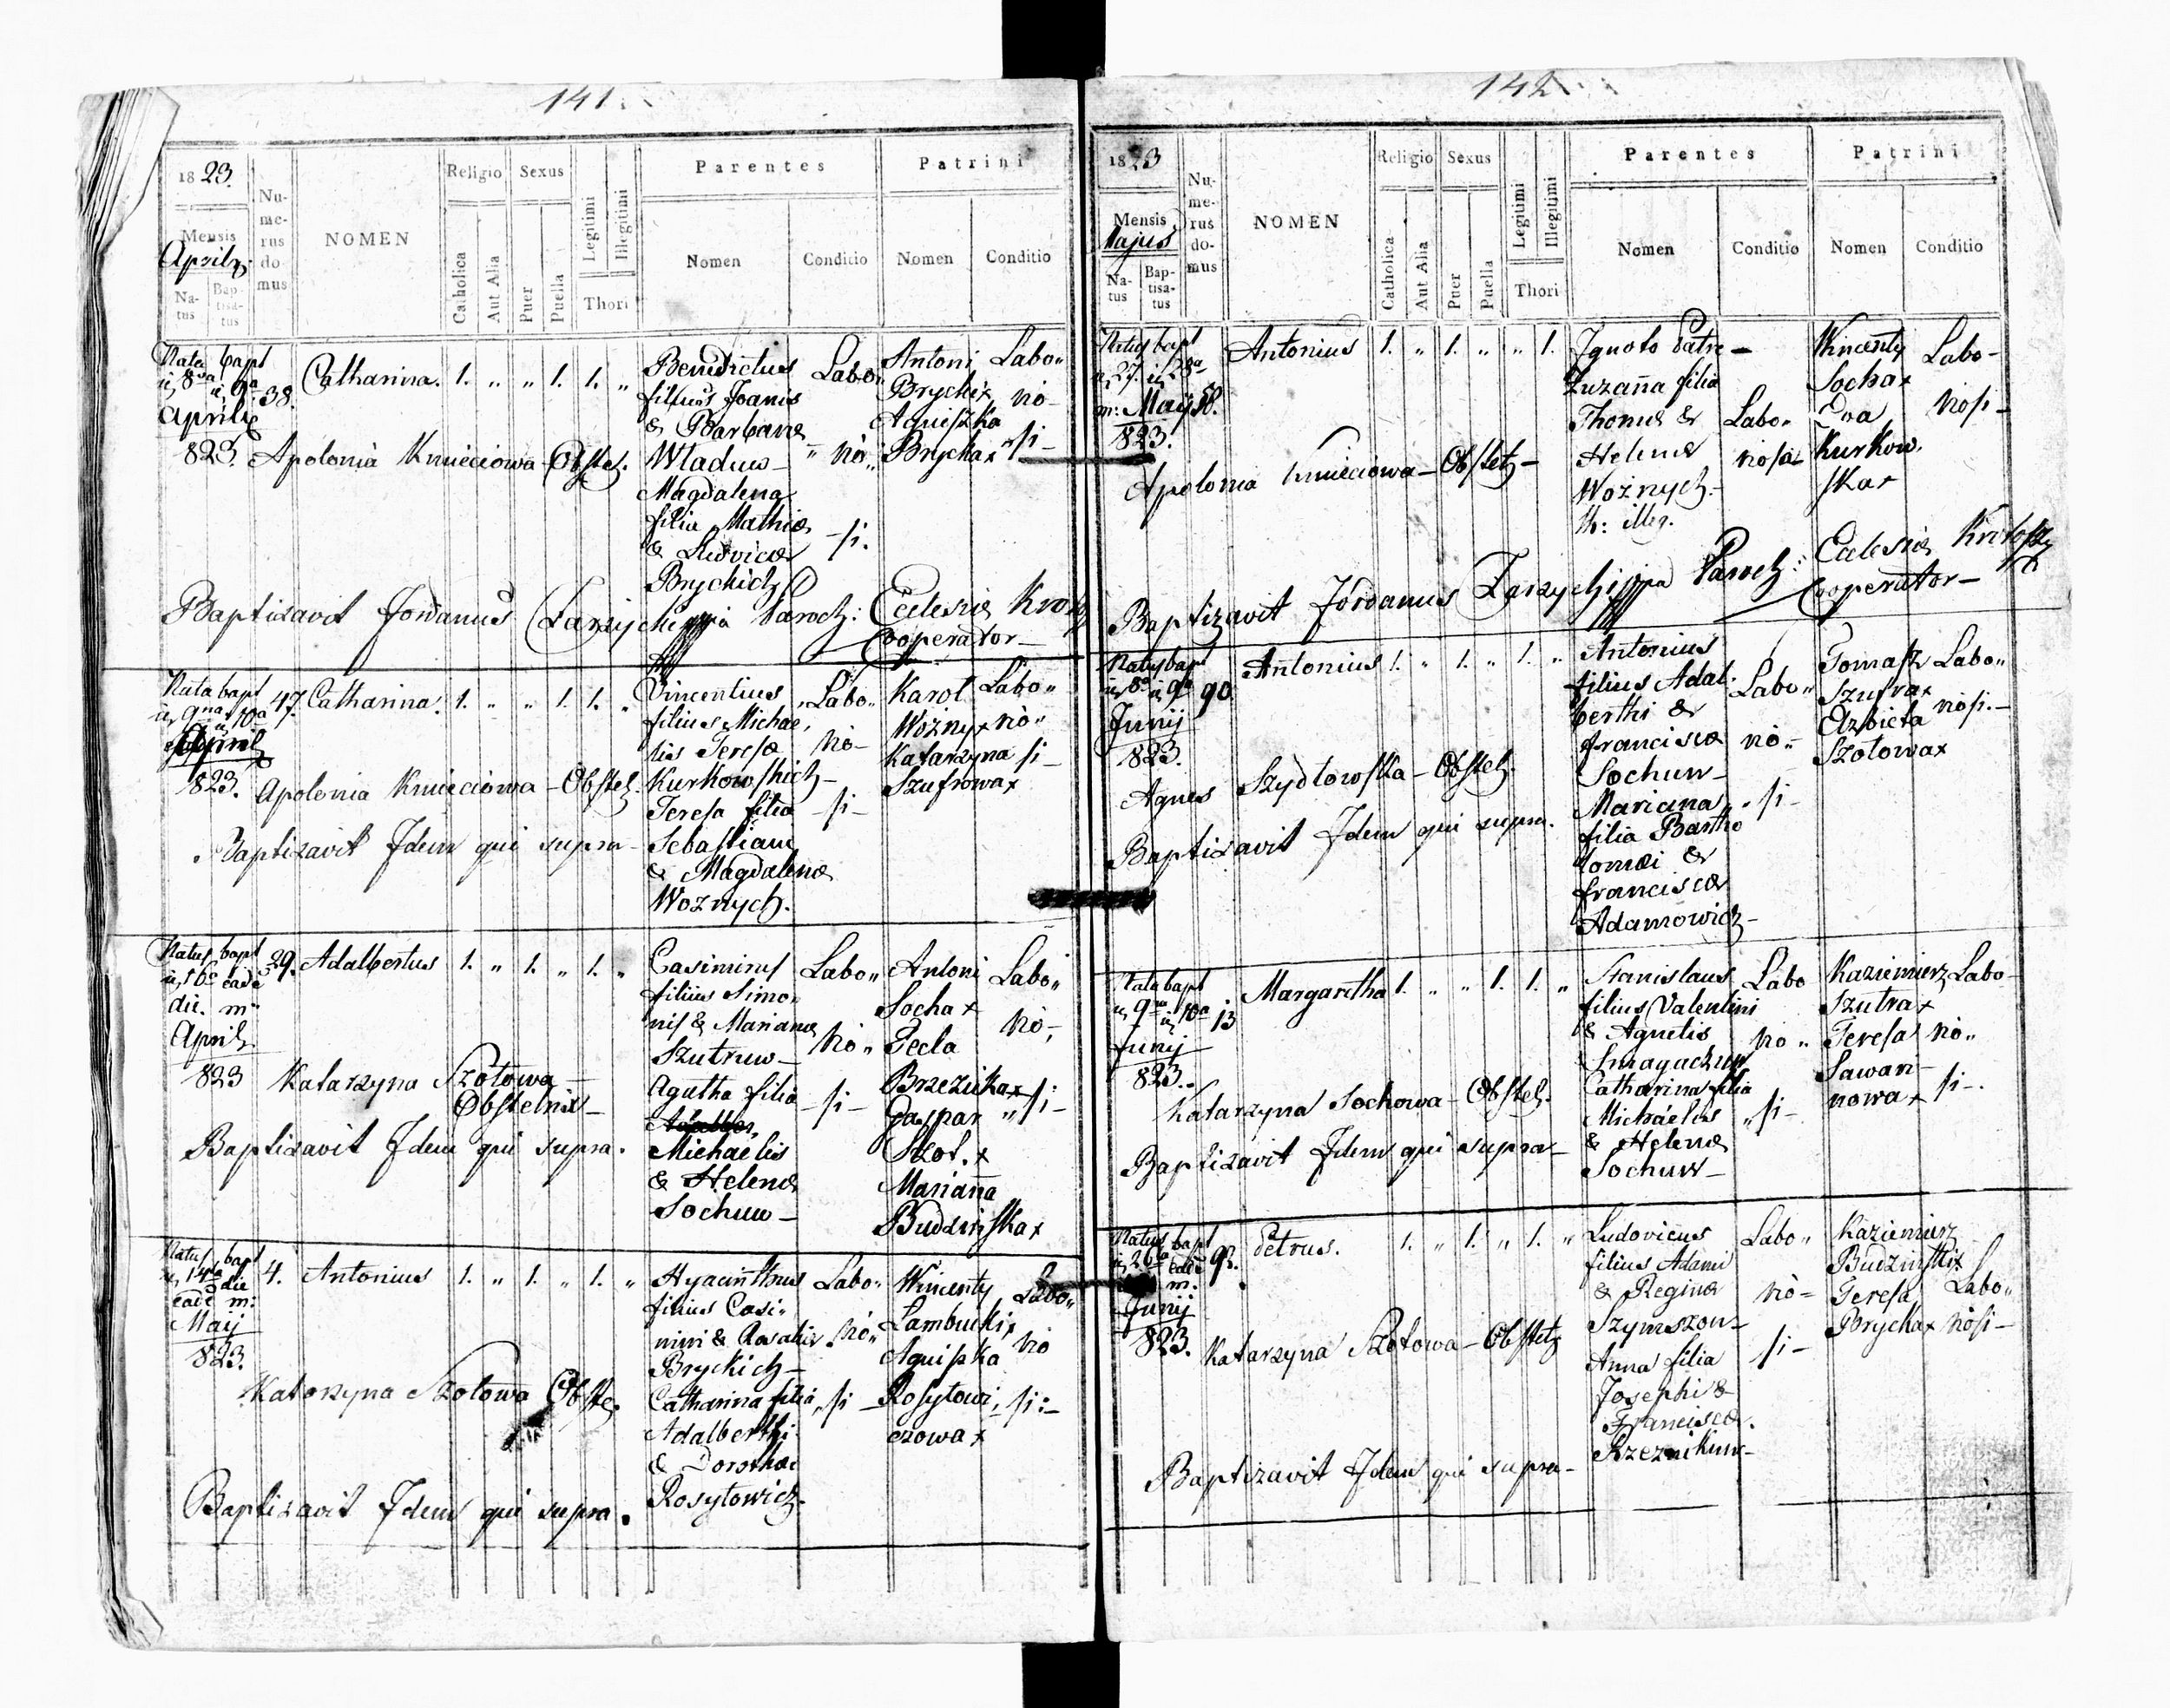 141.
1823.
Mensis
Aprilis
Na-
tus
Bap-
tisa-
tus
Nu-
me-
rus
do-
mus
NOMEN
Religio
Catholica
Aut Alia
Sexus
Puer
Puella
Legitimi
Illegitimi
Thori
Parentes
Nomen
Conditio
Patrini
Nomen
Conditio
Nata bapt
Aprilis
823.
38.
Catharina. 1. " " 1. 1. "
Apolonia Kmieciowa - Obstet.
Benedictus
filius Joanis
& Barbarae
Wladuw-
Magdalena
filia Mathiae
& Ludvicae
Brychich
Labo"
" no"
-si.
Antoni
Brychix
Agniszka
Brychax
Labo"
no-
"si-
Baptizavit Jordanus Zarzychi ppa Paroch: Ecclesiae
Cooperator-
Nata bapt
April
823.
47.
Catharina. 1. " " 1. 1. "
Apolonia Kmieciowa - Obstet.
Baptizavit Idem qui supra-
Vincentius
filius Michae,
lis Teresae
Kurkowskich-
Teresa filia
Sebastiani
& Magdalenae
Woznych.
Labo"
no-
-si-
Karol
Woznyx
Katarzyna
Szufrowax
Labo"
no"
si-
Natus bapt
die. m:
April
823
29.
Adalbertus 1. " 1. " 1. "
Katarzyna Szotowa-
Obstetrix-
Baptizavit Idem qui supra.
Casimirus
filius Simo"
nis & Marianae
Szutruw-
Agatha filia
Michaelis
& Helenae
Sochuw-
Labo"
no"
-si-
Antoni
Sochax
Tecla
Brzezickax
Gaspar
Szot.x
Marianna
Budzinskax
Labo"
no"
"si-
Natus bapt
eade m:
Maij
823.
4.
Antonius 1. " 1. " 1. "
Katarzyna Szotowa Obste.
Baptizavit Idem qui supra.
Hyacinthus
filius Casi"
miri & Rosaliae
Brychich-
Catharina filia
Adalberthi
& Dorothae
Rosytowich.
Labo"
no"
si-
Wincenty
Lambuckix
Agniszka
Rosytowi"
czowax
Labo"
no
si:-
142.
1823
Mensis
Majus
Na-
tus
Bap-
tisa-
tus
Nu-
me-
rus
do-
mus
NOMEN
Religio
Catholica
Aut Alia
Sexus
Puer
Puella
Legitimi
Illegitimi
Thori
Parentes
Nomen
Conditio
Patrini
Nomen
Conditio
Natus bapt
m: Maij
823.
Antonius 1. " 1. " " 1.
Apolonia Kmieciowa - Obstetz-
Ignoto Patre-
Zuzanna filia
Thomae &
Helenae
Woznych.-
Labo"
nosa-
Wincenty
Sochax
Ewa
Kurkow.
skax
Labo-
nosi-
Baptizavit Jordanus Zarzychi ppa Paroch: Ecclesiae
Cooperator-
Natus bapt
Junij
823.
90
Antonius 1. " 1. " 1. "
Agnes Szydlowska - Obstet.
Baptizavit Idem qui supra.
Antonius
filius Adal.
berthi &
Franciscae
Sochuw-
Mariana
filia Bartho
lomaei &
Franciscae
Adamowich-
Labo"
no"
"si-
Tomasz
Szufrax
Elzbieta
Szotowax
Labo"
nosi.-
Nata bapt
Junij
823.
13
Margaretha 1. " " 1. 1. "
Katarzyna Sochowa - Obstet.
Baptizavit Idem qui supra-
Stanislaus
filius Valentini
& Agnetis
Smagachuw
Catharina filia
Michaelis
& Helenae
Sochuw-
Labo
no"
"si-
Kaziemierz
Szutrax
Teresa
Sawan-
nowax
Labo-
no"
si-.
Natus bapt
m.
Junij
823.
92.
Petrus. 1. " 1. " 1. "
Katarzyna Szotowa - Obstetz
Baptizavit Idem qui supra-
Ludovicus
filius Adami
& Reginae
Szymszow-
Anna filia
Josephi &
Franciscae.
Rzeznikuw-
Labo"
no-
si-
Kaziemierz
Budzinskix
Teresa
Brychax
Labo"
nosi-